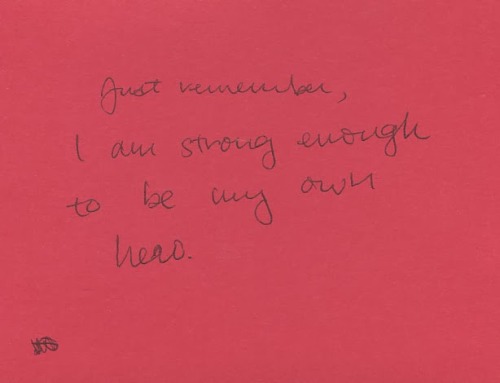 Just remember,
I am strong enough
to be my own
hero.